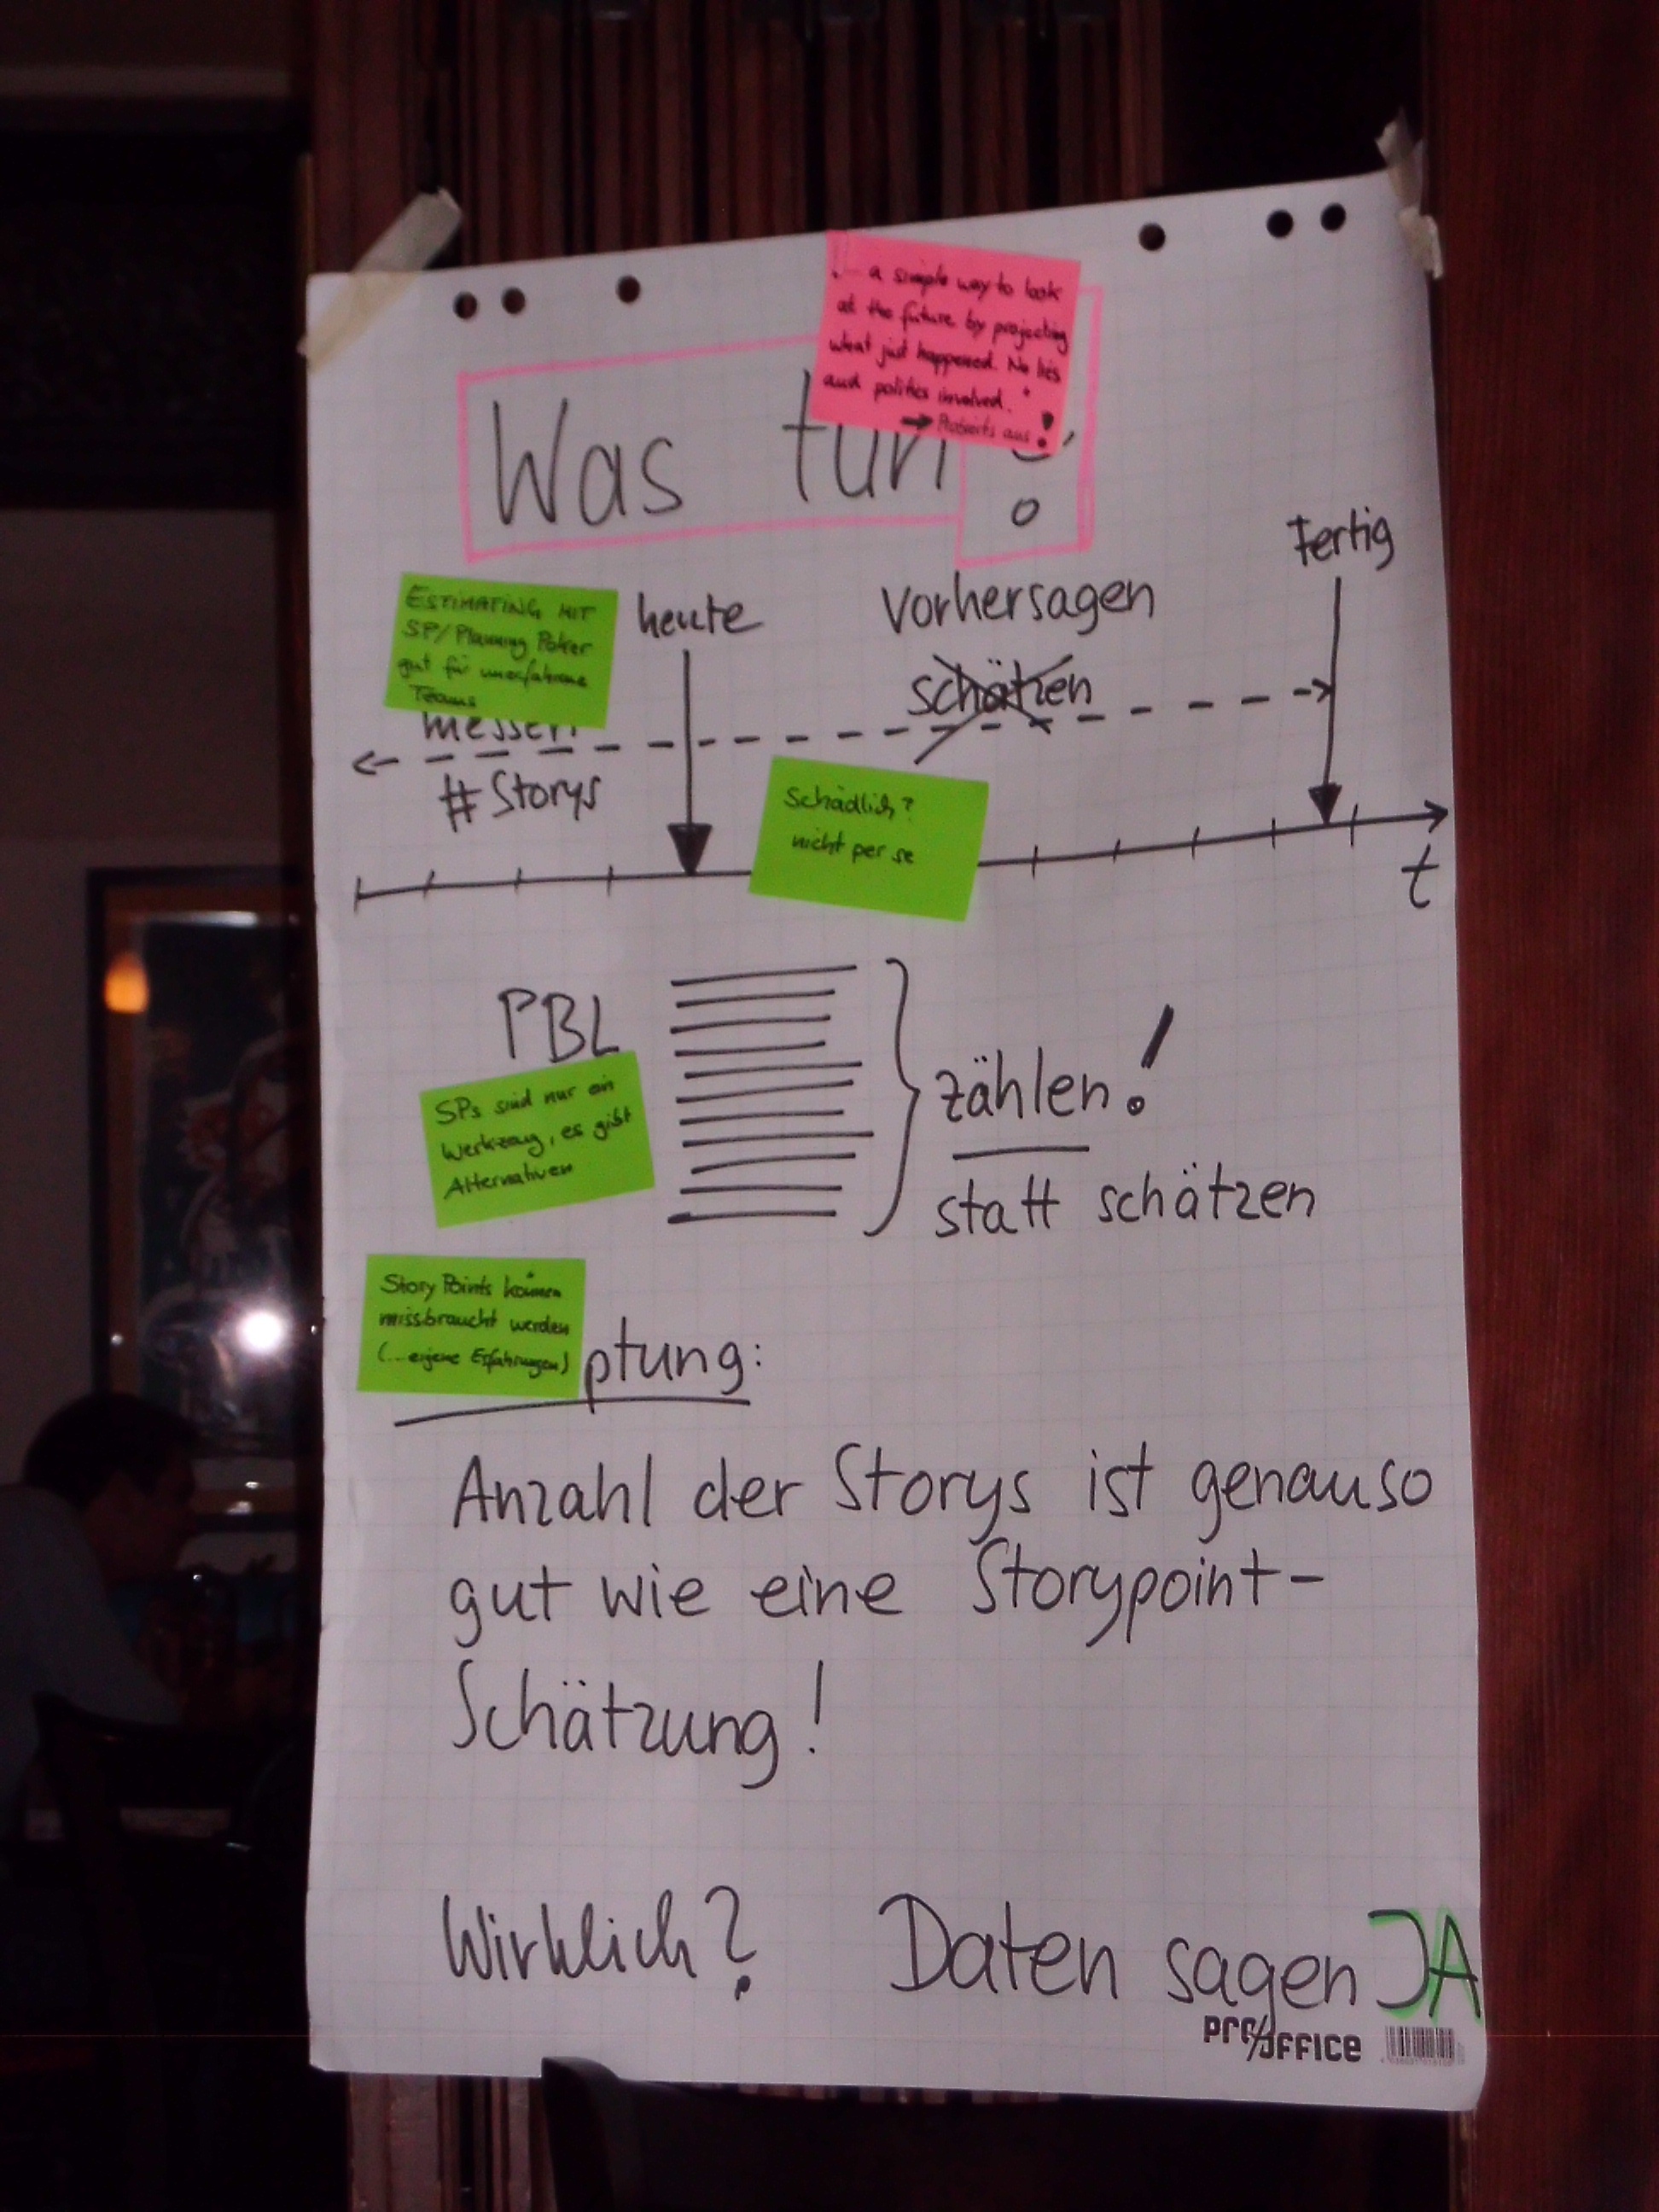 a simple way to look
at the future by projecting
what just happened. No lies
and politics involved."
Was tun
ESTIMATING MIT
SP/Planning Poker
gut für unerfahrene
Teams
heute
vorhersagen
schätzen
Fertig
messen
#Storys
Schädlich?
nicht per se
t
PBL
SPs sind nur ein
Werkzeug, es gibt
Alternativen
zählen!
statt schätzen
Story Points können
missbraucht werden
(...eigene Erfahrungen)
ptung:
Anzahl der Storys ist genauso
gut wie eine Storypoint-
Schätzung!
Wirklich? Daten sagen JA
pro/OFFICE